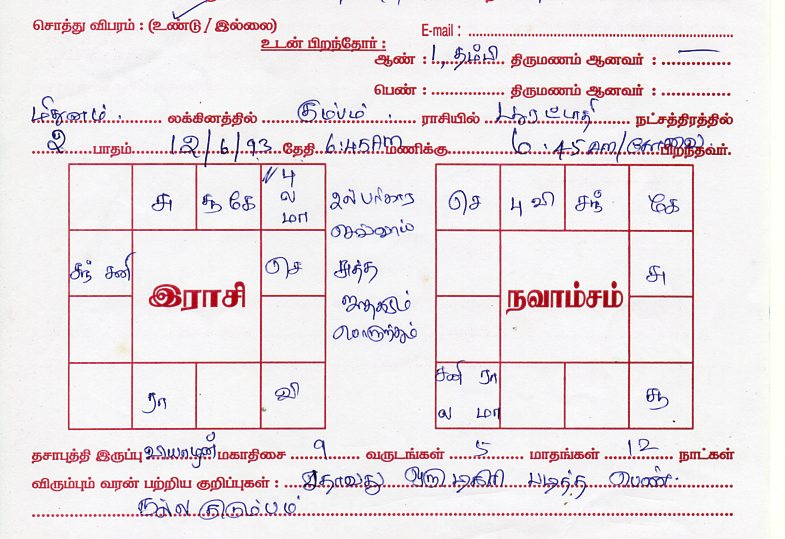 சொத்து விபரம் : (உண்டு / இல்லை)
E-mail :
உடன் பிறந்தோர் :
ஆண் : 1, தம்பி திருமணம் ஆனவர் : —
பெண் : திருமணம் ஆனவர் :
மிதுனம் லக்கினத்தில் கும்பம் ராசியில் பூரட்டாதி நட்சத்திரத்தில்
2 பாதம் 12/6/93 தேதி 6:45AM மணிக்கு 6:45 AM/ பிறந்தவர்.
சு சூ கே பு ல மா
சந் சனி செ
இராசி
ரா வி
சுத்த
ஜாதகம்
பொருந்தும்
செ பு வி சந் கே
சு
நவாம்சம்
சனி ரா ல மா சூ
தசாபுத்தி இருப்பு வியாழன் மகாதிசை 9 வருடங்கள் 5 மாதங்கள் 12 நாட்கள்
விரும்பும் வரன் பற்றிய குறிப்புகள் : ஏதாவது ஒரு டிகிரி படித்த பெண்.
நல்ல குடும்பம்